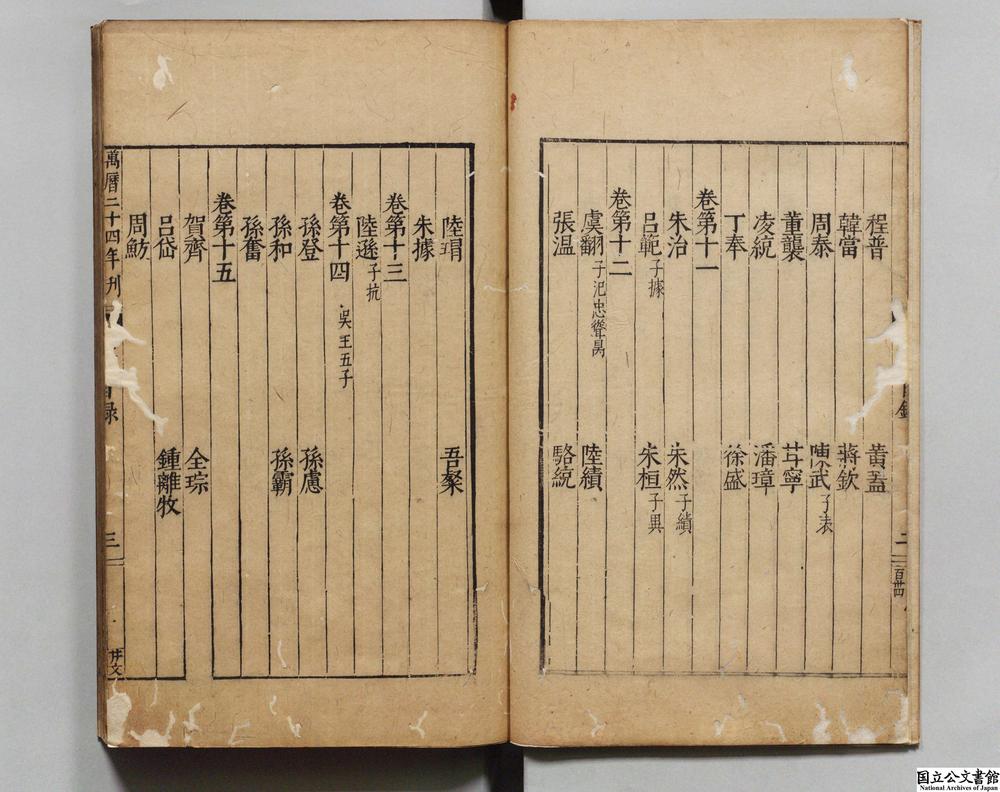 目錄 二
程普 黃蓋
韓當 蔣欽
周泰 陳武子表
董襲 甘寧
凌統 潘璋
丁奉 徐盛
卷第十一
朱治 朱然子績
呂範子據 朱桓子異
卷第十二
虞翻子汜忠聳昺 陸績
張温 駱統
陸瑁 吾粲
朱據
卷第十三
陸遜子抗
卷第十四 吳王五子
孫登 孫慮
孫和 孫霸
孫奮
卷第十五
賀齊 全琮
呂岱 鍾離牧
周魴
萬曆二十四年刊 目録 三 井文
国立公文書館
National Archives of Japan